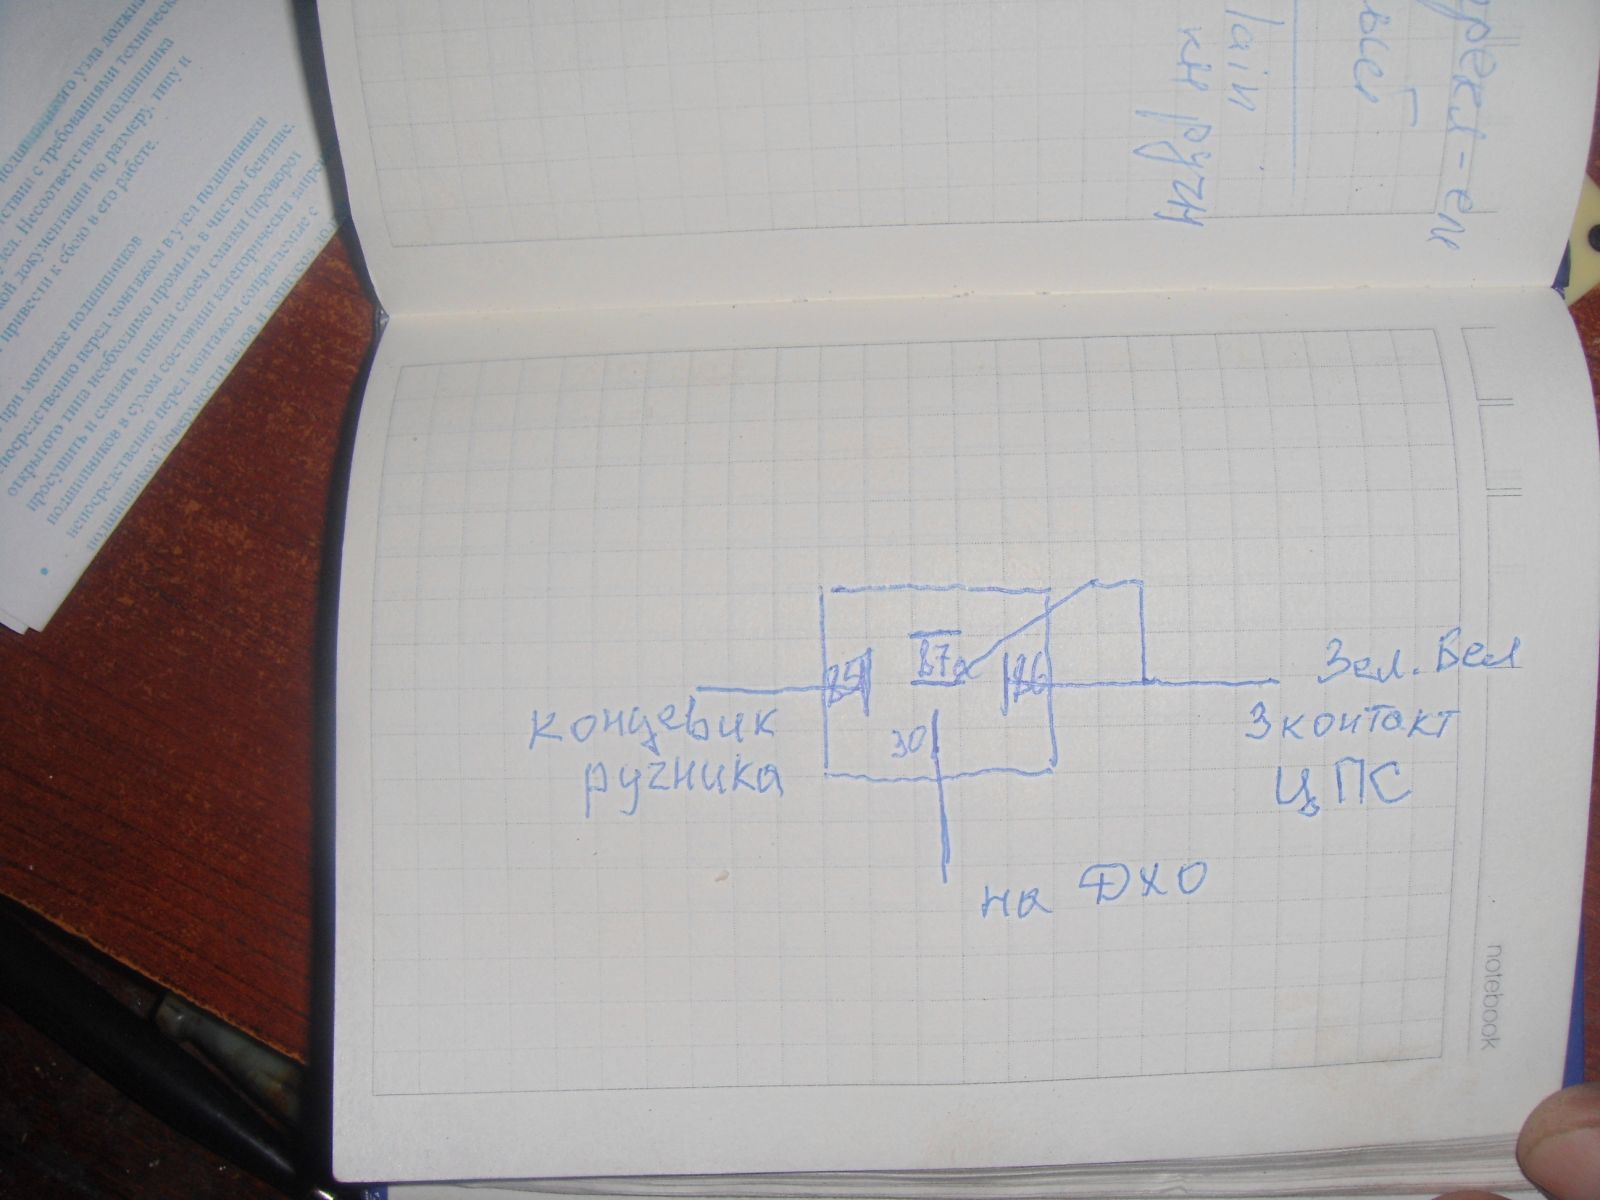 подшипникового узла должна
с требованиями технической
узел. Несоответствие подшипника
документации по размеру, типу и
привести к сбою в его работе.
при монтаже подшипников
непосредственно перед монтажом в узел подшипники
открытого типа необходимо промыть в чистом бензине,
просушить и смазать тонким слоем смазки (проворот
подшипников в сухом состоянии категорически
непосредственно перед монтажом сопрягаемые с
подшипником поверхности валов и корпусов
кн ручн
85
87a
86
30
концевик
ручника
Зел. Бел
3 контакт
ЦПС
на ДХО
notebook